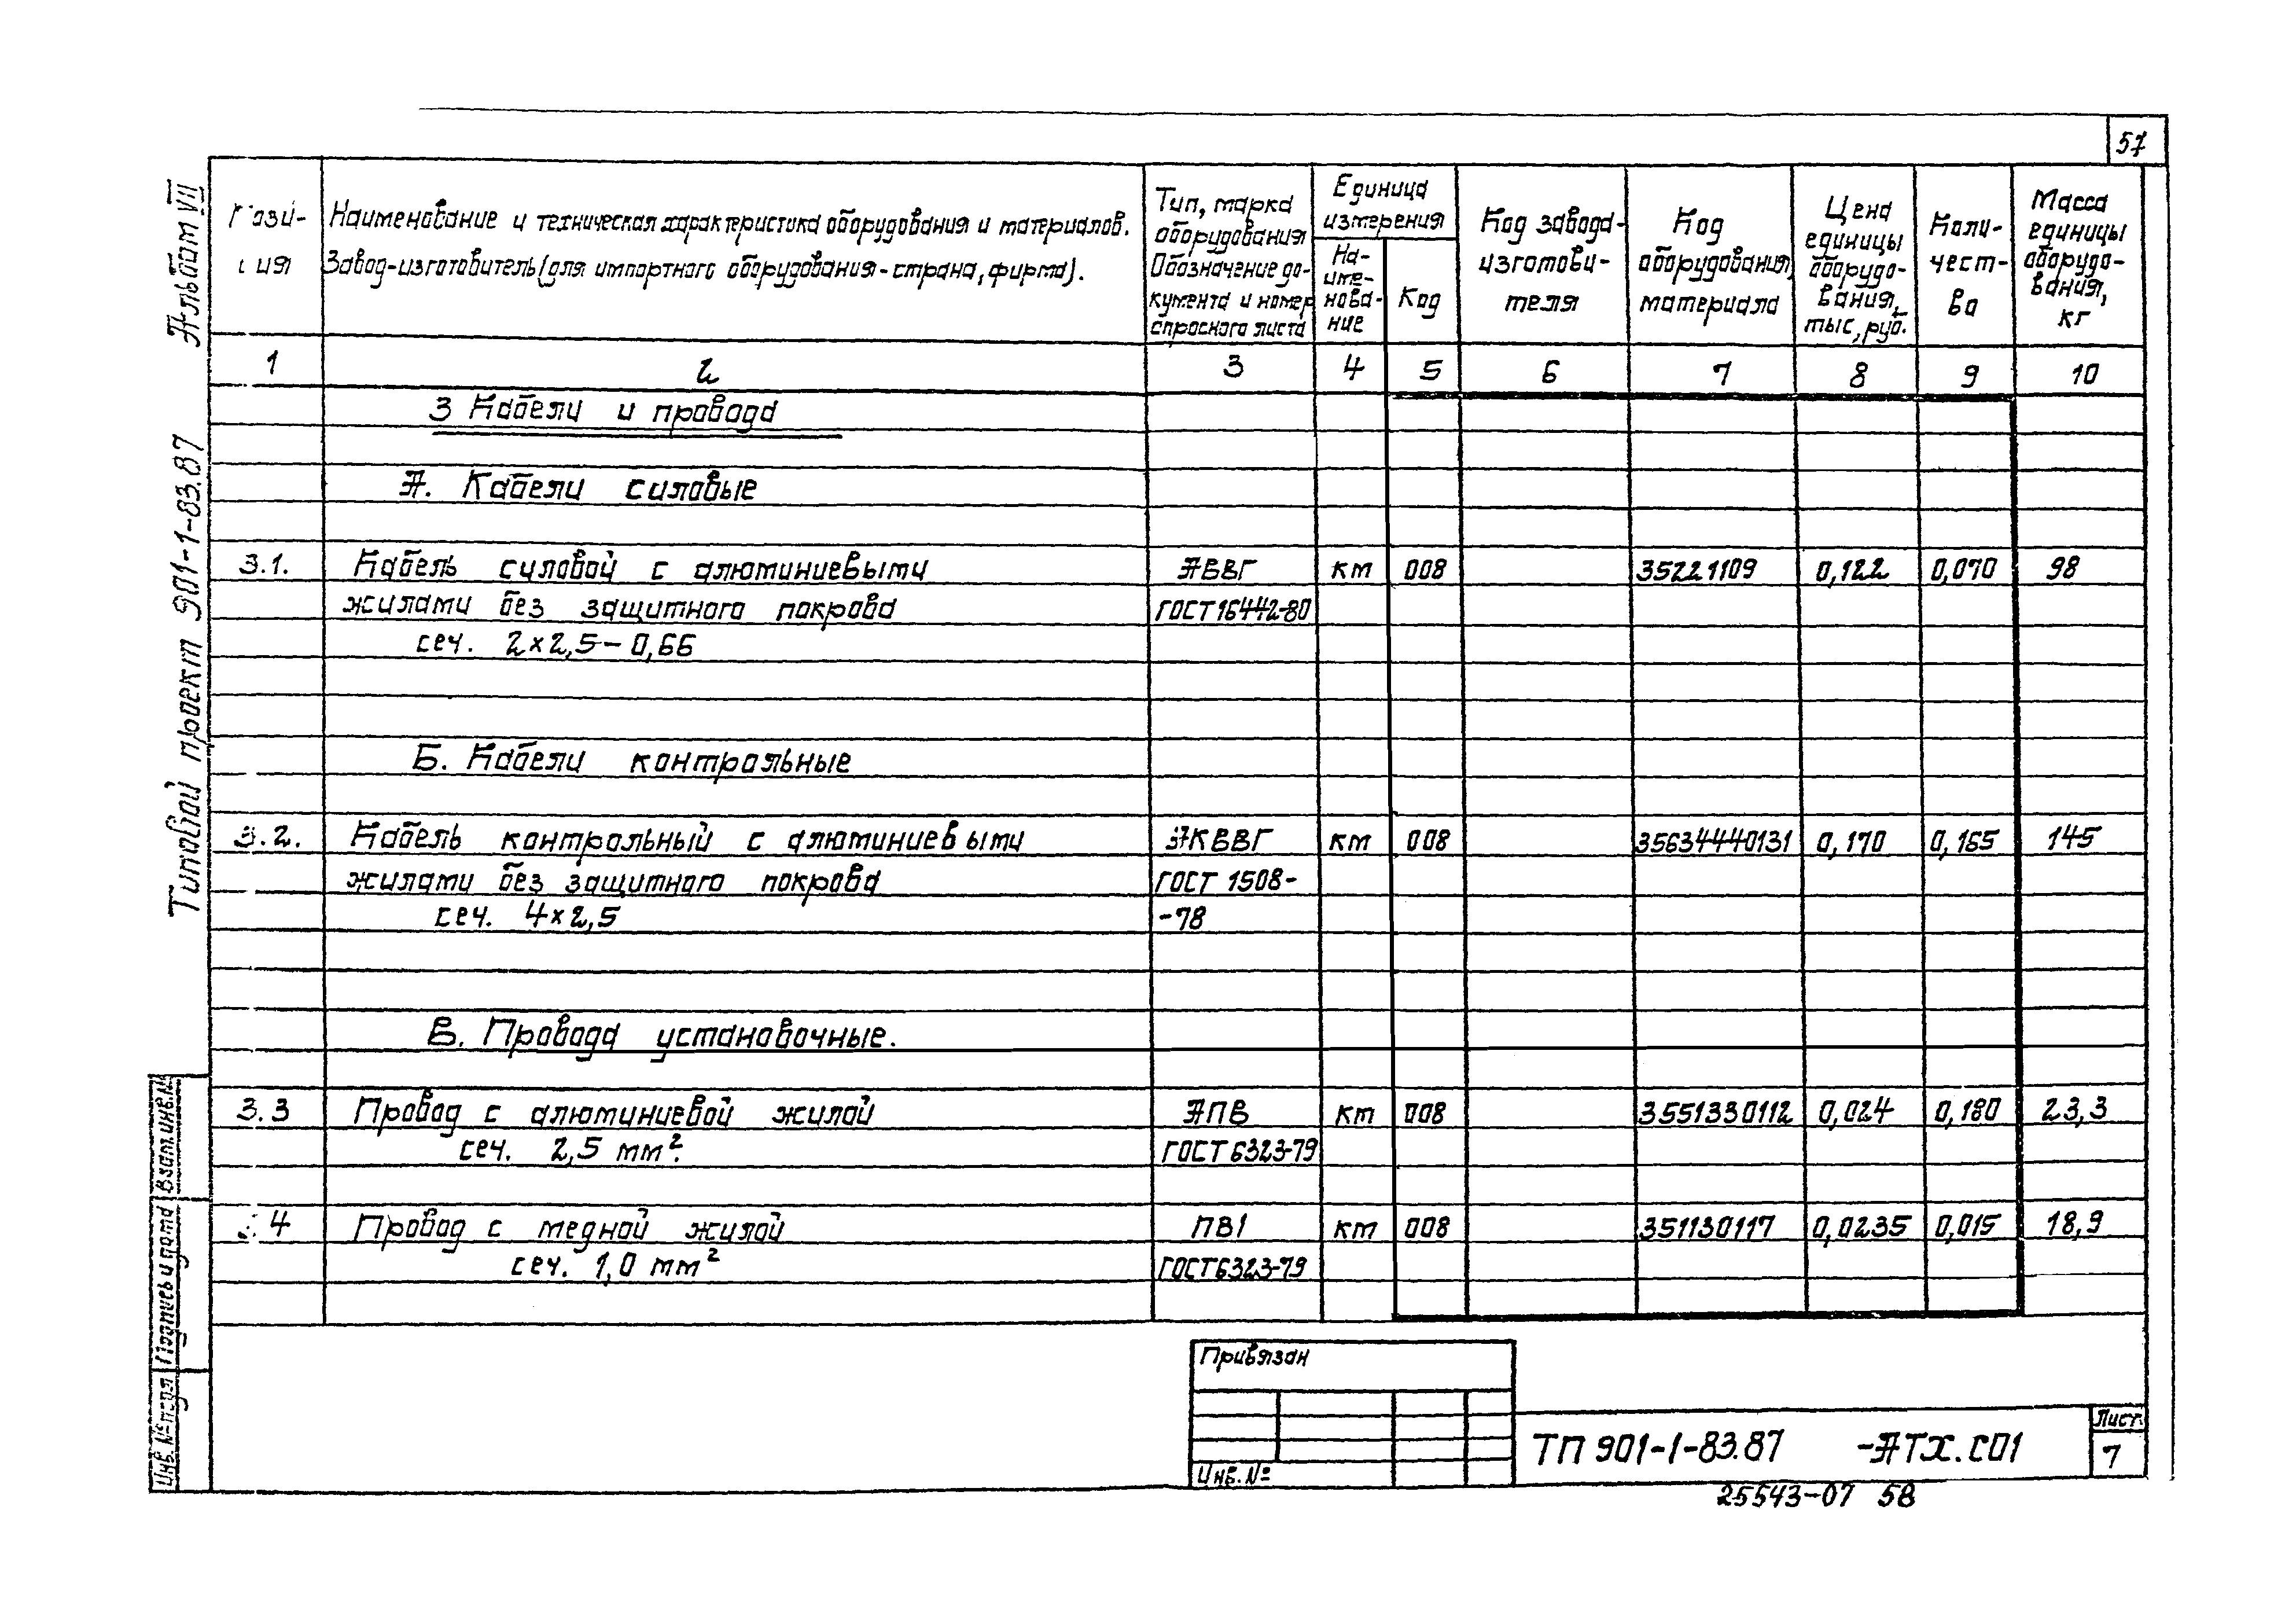 57
Альбом VII
Типовой проект 901-1-83.87
Пози-
ция
Наименование и техническая характеристика оборудования и материалов.
Завод-изготовитель (для импортного оборудования - страна, фирма).
Тип, марка
оборудования
Обозначение до-
кумента и номер
опросного листа
Единица
измерения
На-
име-
нова-
ние
Код
Код завода-
изготови-
теля
Код
оборудования,
материала
Цена
единицы
оборудо-
вания,
тыс, руб.
Коли-
чест-
ва
Масса
единицы
оборудо-
вания,
кг
1 2 3 4 5 6 7 8 9 10
3 Кабели и провода
А. Кабели силовые
3.1. Кабель силовой с алюминиевыми АВВГ км 008 35221109 0,122 0,070 98
жилами без защитного покрова ГОСТ 16442-80
сеч. 2×2,5-0,66
Б. Кабели контрольные
3.2. Кабель контрольный с алюминиевыми АКВВГ км 008 35634440131 0,170 0,165 145
жилами без защитного покрова ГОСТ 1508-
сеч. 4×2,5 -78
В. Провода установочные.
3.3 Провод с алюминиевой жилой АПВ км 008 3551330112 0,024 0,180 23,3
сеч. 2,5 мм². ГОСТ 6323-79
3.4 Провод с медной жилой ПВ1 км 008 351130117 0,0235 0,015 18,9
сеч. 1,0 мм² ГОСТ 6323-79
Взам. инв. №
Подпись и дата
Инв. № подл
Привязан
Инв. №
ТП 901-1-83.87 -АТХ.СО1
Лист
7
25543-07 58